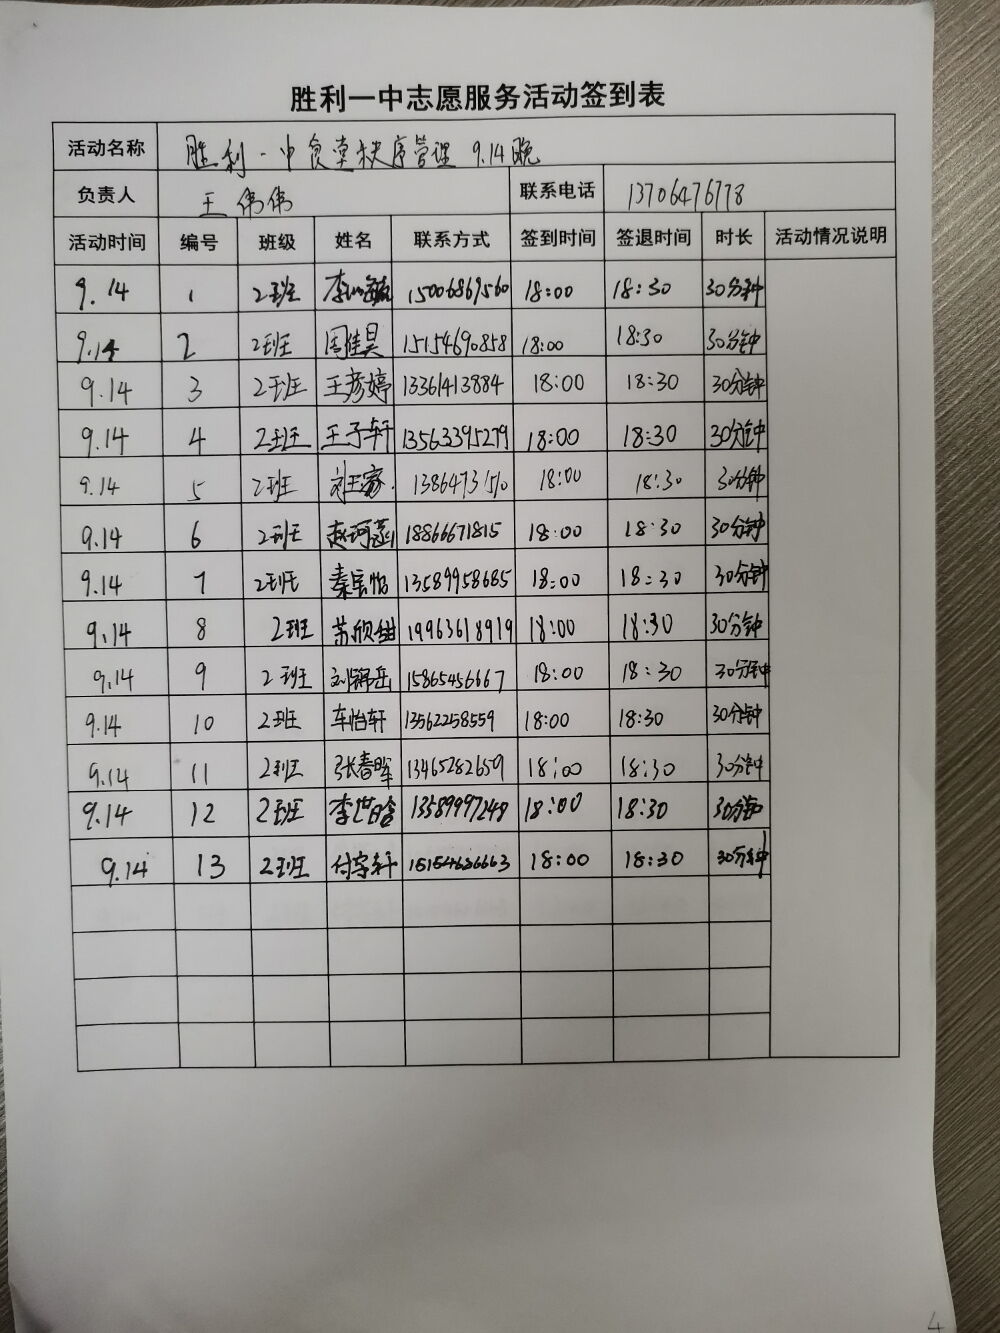 胜利一中志愿服务活动签到表
活动名称 胜利一中食堂秩序管理 9.14晚
负责人 王伟伟 联系电话 13706476778
活动时间 编号 班级 姓名 联系方式 签到时间 签退时间 时长 活动情况说明
9.14 1 2班 15006869560 18:00 18:30 30分钟
9.14 2 2班 周佳昊 15154690858 18:00 18:30 30分钟
9.14 3 2班 王彦婷 13361413884 18:00 18:30 30分钟
9.14 4 2班 王子轩 13563395279 18:00 18:30 30分钟
9.14 5 2班 18:00 18:30 30分钟
9.14 6 2班 赵珂菡 18866671815 18:00 18:30 30分钟
9.14 7 2班 13589958685 18:00 18:30 30分钟
9.14 8 2班 苏欣甜 19963618919 18:00 18:30 30分钟
9.14 9 2班 刘锦岳 15865456667 18:00 18:30 30分钟
9.14 10 2班 车怡轩 13562258559 18:00 18:30 30分钟
9.14 11 2班 张春晖 13465282659 18:00 18:30 30分钟
9.14 12 2班 李世晗 13589997248 18:00 18:30 30分钟
9.14 13 2班 付宇轩 15154636663 18:00 18:30 30分钟
4